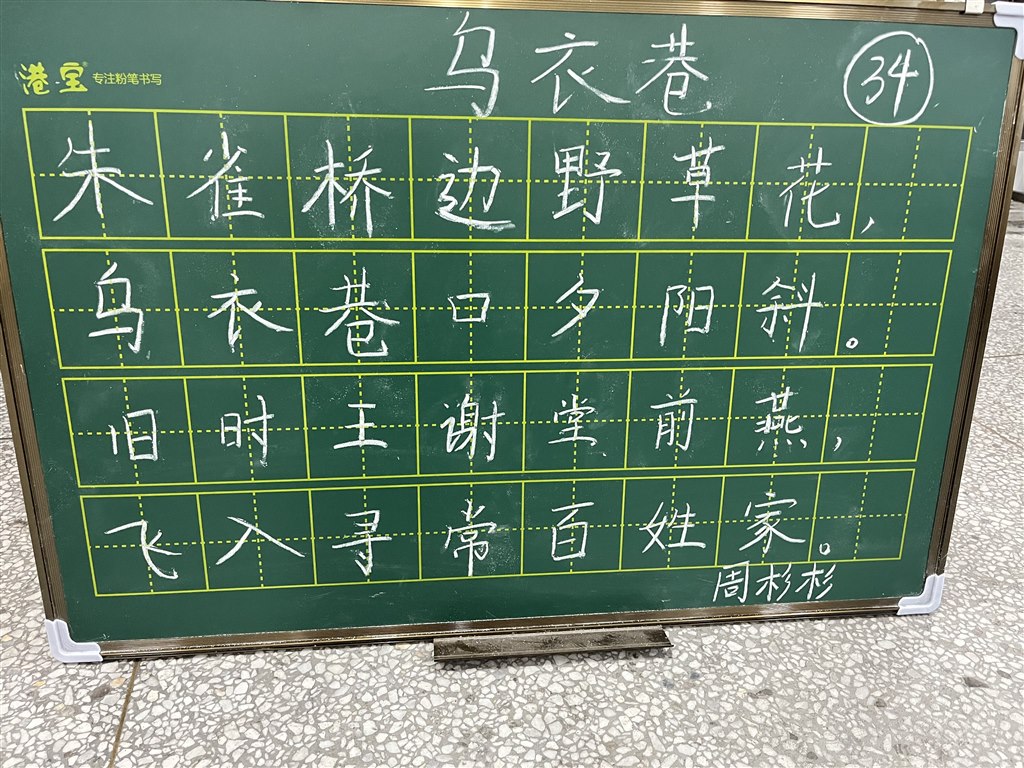 乌衣巷 34
港宝 专注粉笔书写
朱雀桥边野草花,
乌衣巷口夕阳斜。
旧时王谢堂前燕,
飞入寻常百姓家。
周杉杉